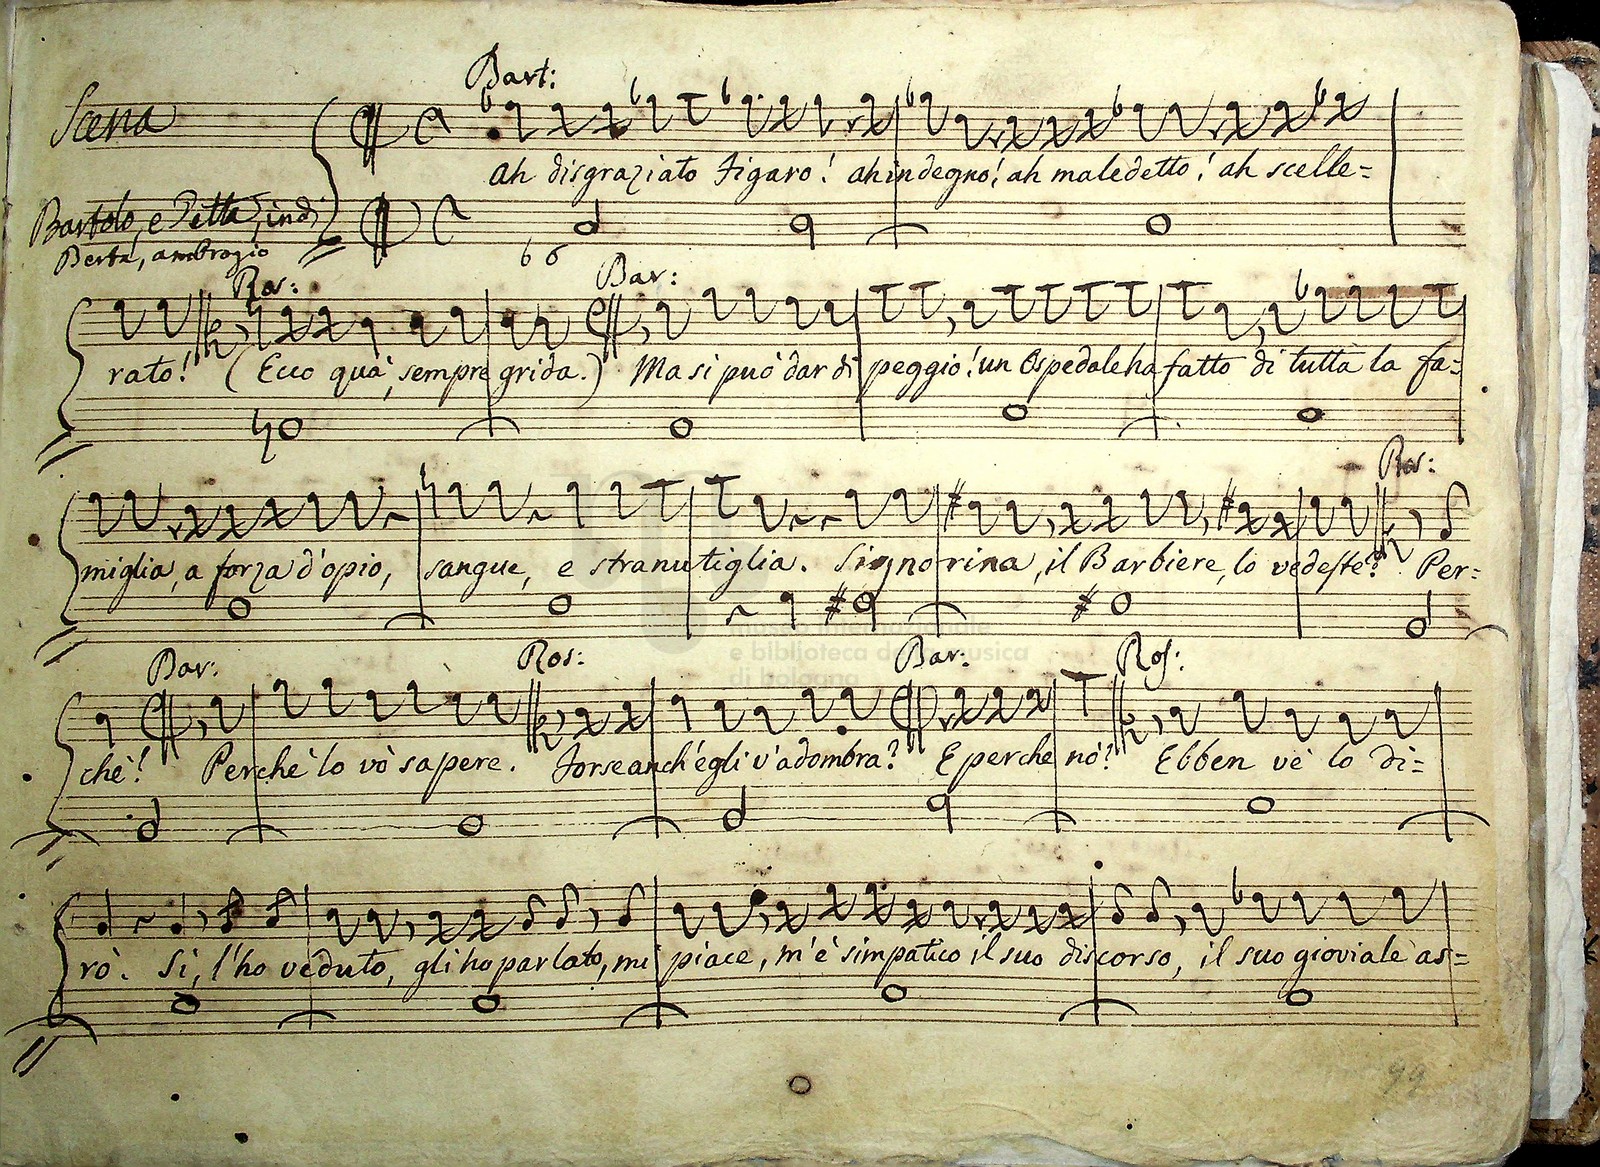 Bart:
Scena
ah disgraziato Figaro! ah indegno! ah maledetto! ah scelle=
Bartolo, e Detta, indi
Berta, ambrogio
6 6
Ros: Bar:
rato! (Ecco quà, sempre grida.) Ma si può dar di peggio! un Ospedale ha fatto di tutta la fa=
Ros:
miglia, a forza d'opio, sangue, e stranutiglia. Signorina, il Barbiere, lo vedeste? Per=
museo internazionale
e biblioteca della musica
di bologna
Bar: Ros: Bar: Ros:
chè! Perchè lo vò sapere. Forse anch'egli v'adombra? E perche nò? Ebben vè lo di=
rò. Si, l'ho veduto, gli ho parlato, mi piace, m'è simpatico il suo discorso, il suo gioviale as=
99